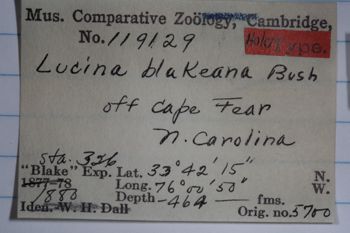 Mus. Comparative Zoölogy, Cambridge,
No. 119129
Holotype.
Lucina blakeana Bush
off Cape Fear
N. Carolina
Sta. 326
"Blake" Exp. Lat. 33° 42' 15" N.
1877-78 Long. 76° 00' 50" W.
1880 Depth -464- fms.
Iden. W. H. Dall Orig. no. 5700